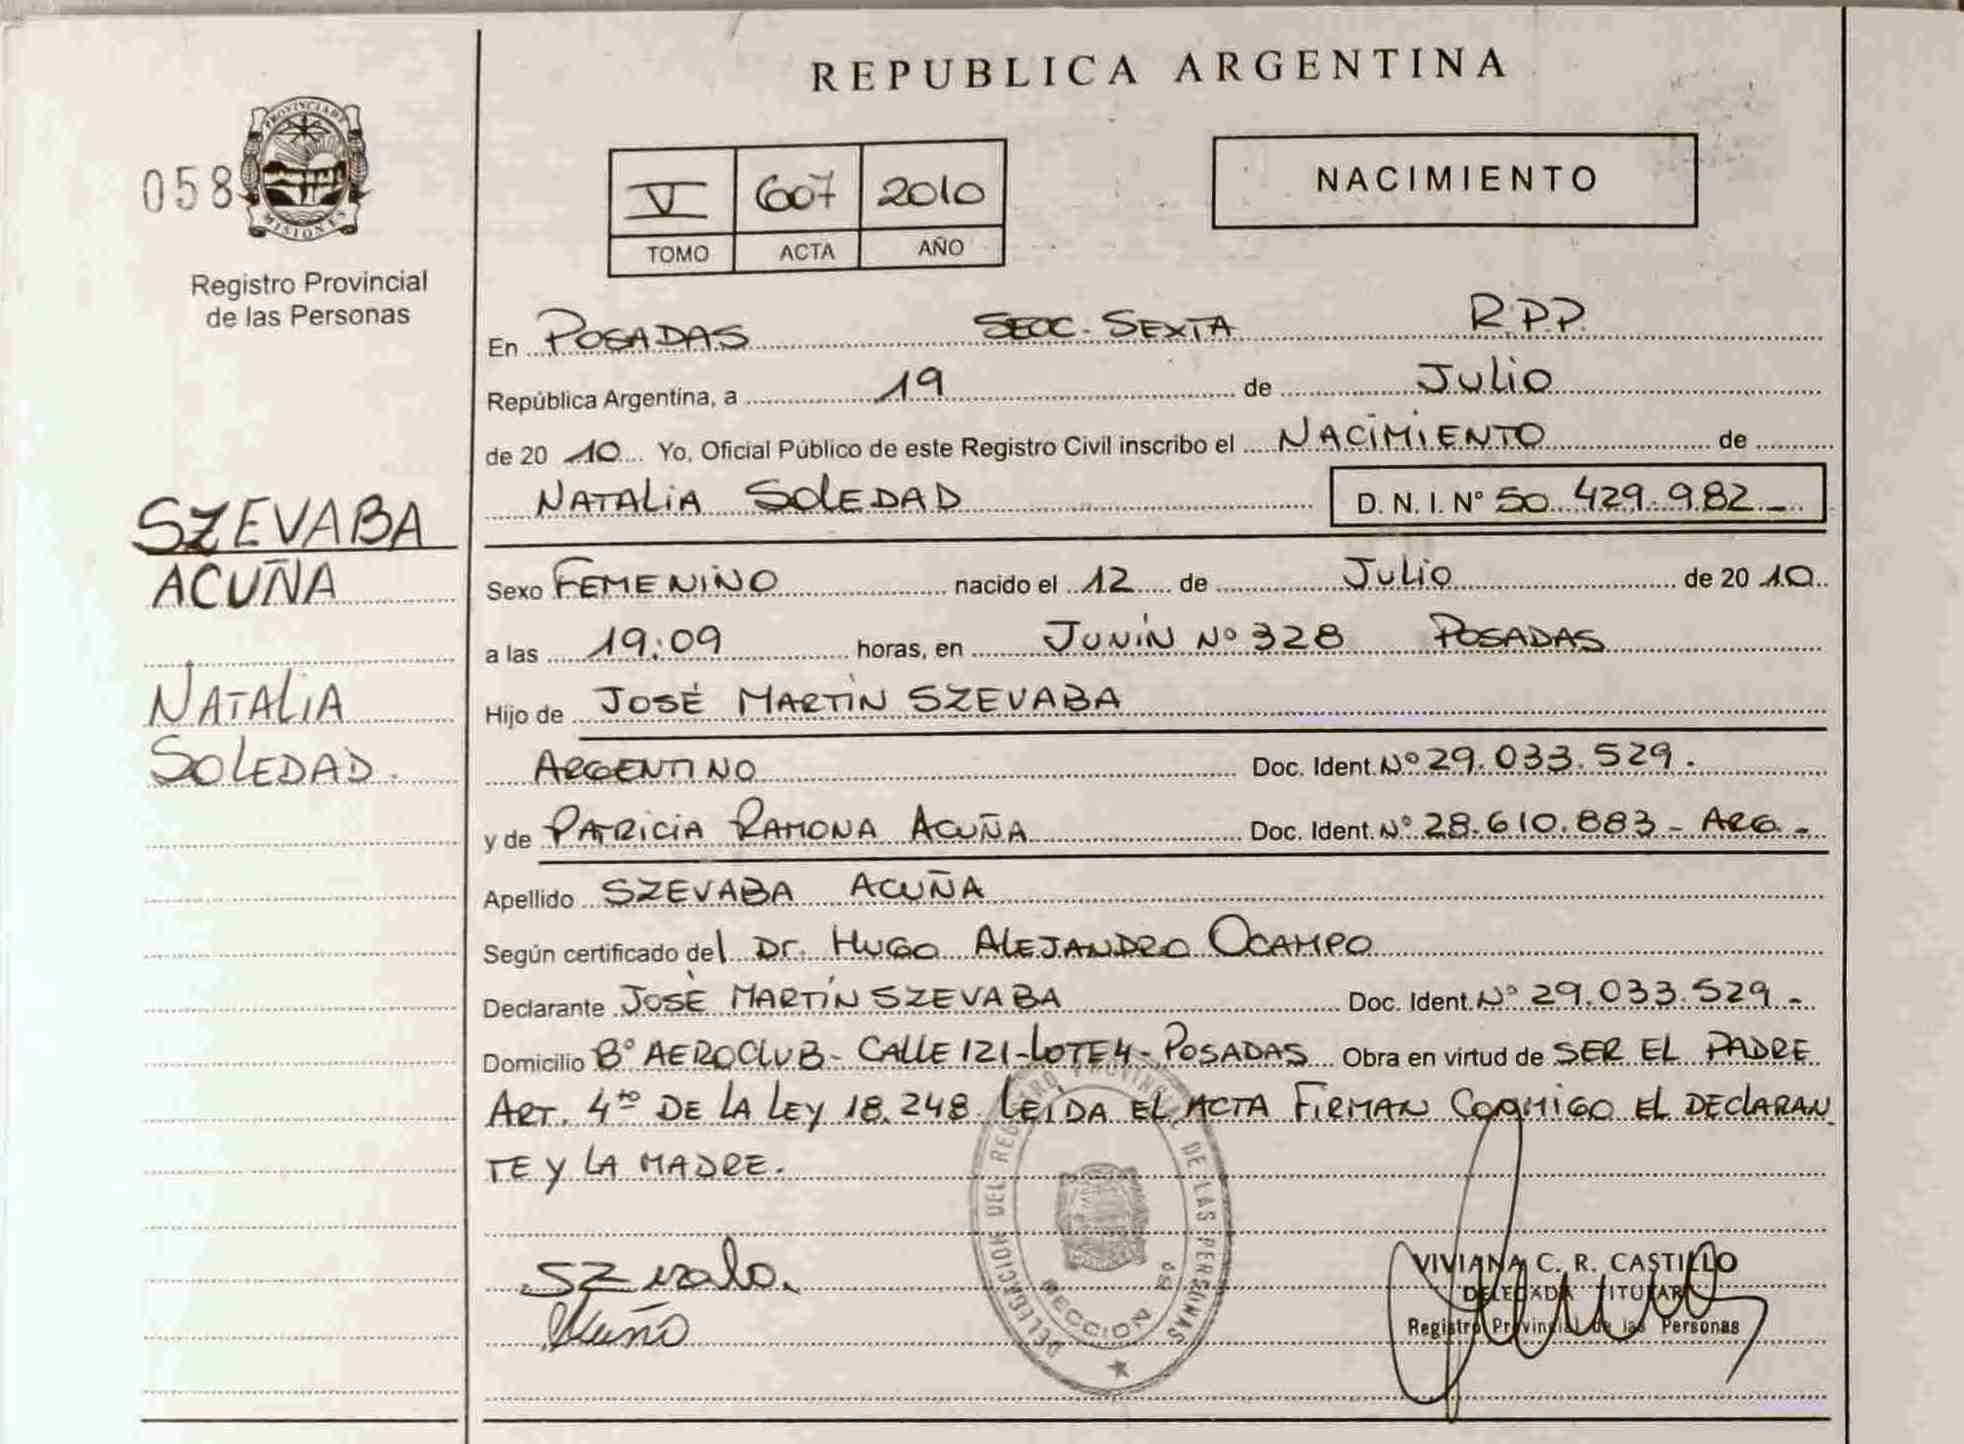 REPUBLICA ARGENTINA
PROVINCIA DE
MISIONES
058
Registro Provincial
de las Personas
V 607 2010
TOMO ACTA AÑO
NACIMIENTO
En POSADAS SECC. SEXTA R.P.P.
República Argentina, a 19 de Julio
de 2010 Yo, Oficial Público de este Registro Civil inscribo el NACIMIENTO de
NATALIA SOLEDAD D. N. I. N° 50.429.982.-
SZEVABA
ACUÑA
NATALIA
SOLEDAD.
Sexo FEMENINO nacido el 12 de Julio de 2010
a las 19:09 horas, en JUNÍN N° 328 POSADAS
Hijo de JOSÉ MARTÍN SZEVABA
ARGENTINO Doc. Ident. N° 29.033.529.
y de PATRICIA RAMONA ACUÑA Doc. Ident. N° 28.610.883 - ARG. -
Apellido SZEVABA ACUÑA
Según certificado del Dr. HUGO ALEJANDRO OCAMPO
Declarante JOSÉ MARTÍN SZEVABA Doc. Ident. N° 29.033.529 -
Domicilio B° AEROCLUB - CALLE 121 - LOTE 4 - POSADAS Obra en virtud de SER EL PADRE
ART. 4to DE LA LEY 18.248. LEÍDA EL ACTA FIRMAN CONMIGO EL DECLARAN
TE Y LA MADRE.
DELEGACION DEL REGISTRO PROVINCIAL DE LAS PERSONAS
SECCION 6a
Acuña
VIVIANA C. R. CASTILLO
DELEGADA TITULAR
Registro Provincial de las Personas